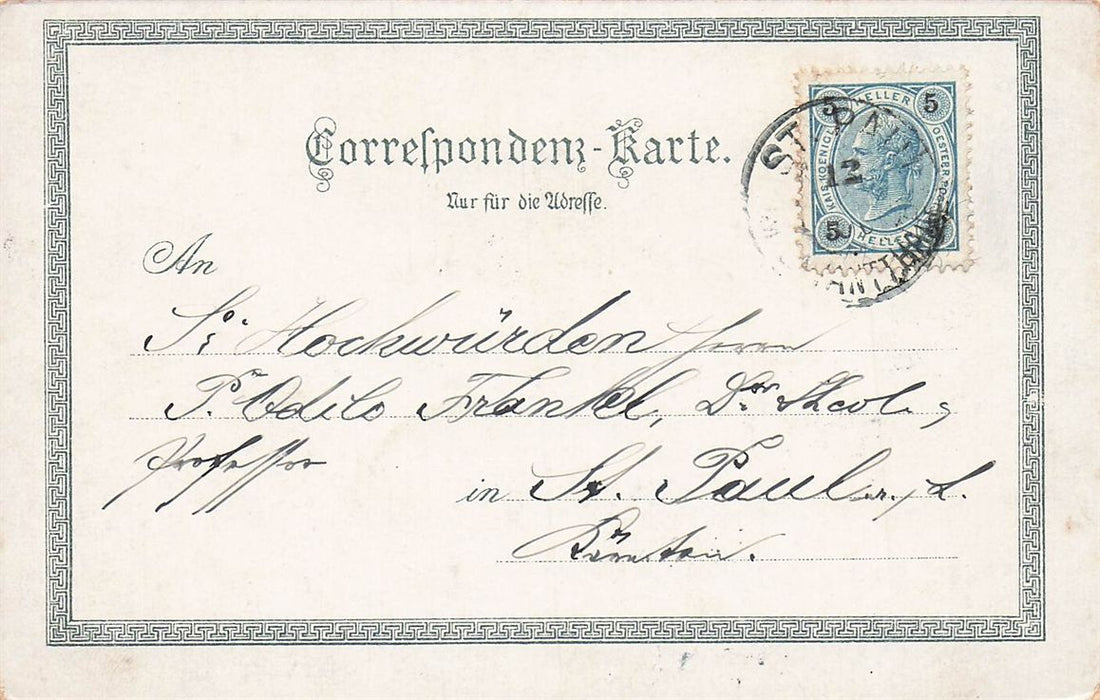 Correspondenz-Karte.
Nur für die Adresse.
5 HELLER 5
KAIS. KOENIGL. OESTERR. POST
5 HELLER
ST. PAUL
12
An
Sr. Hochwürden Herrn
P. Odilo Frankl, Dr. Theol.,
Professor
in St. Paul
Kärnten.